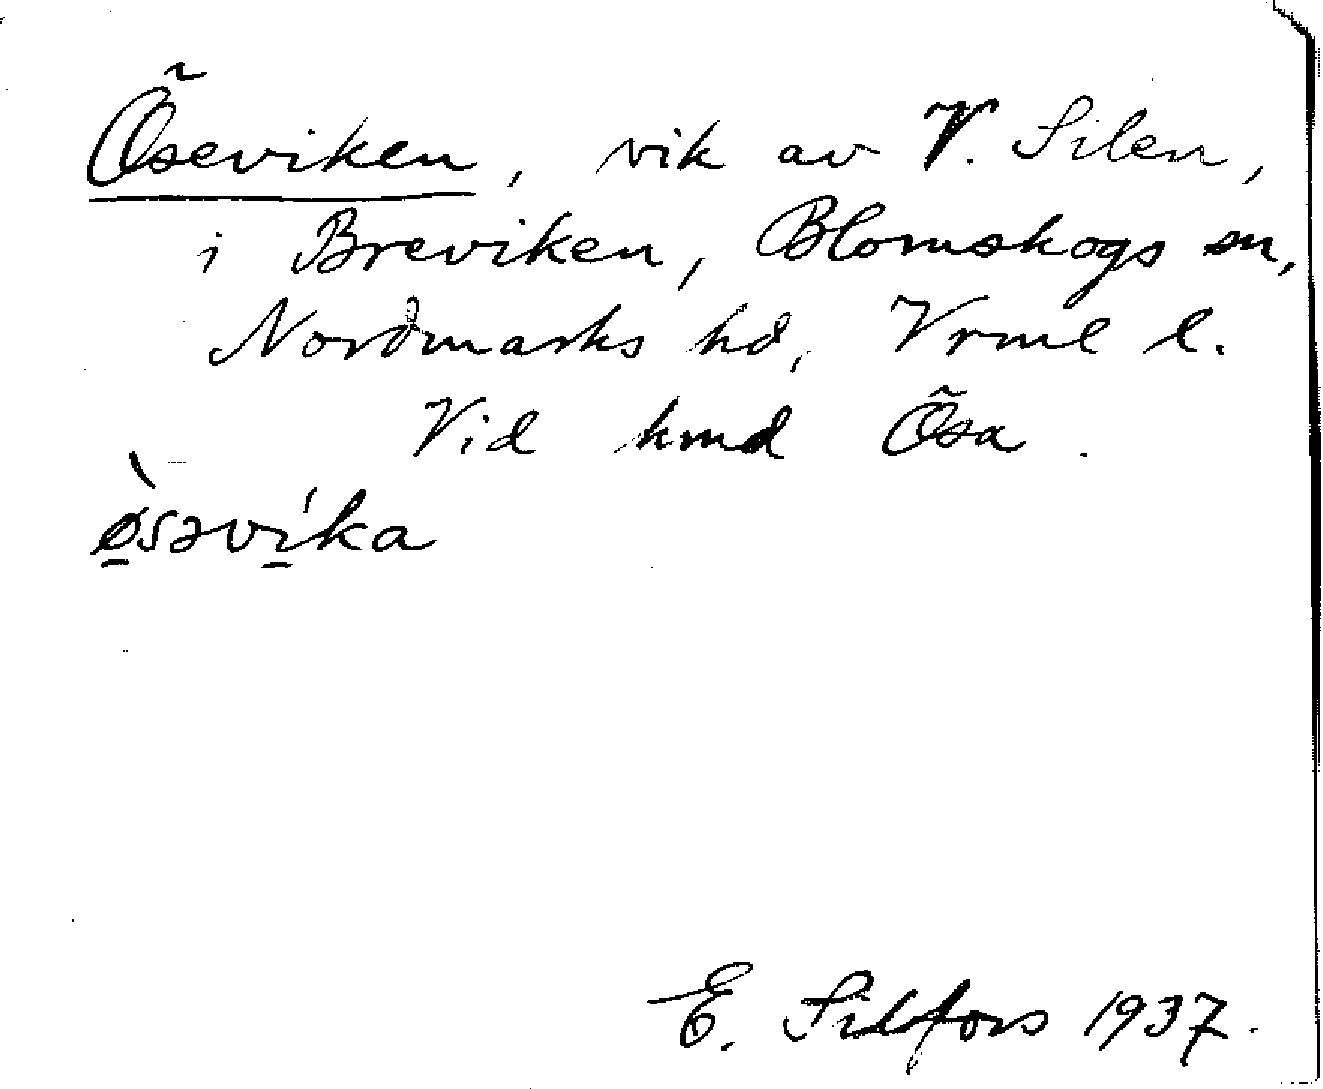 Öseviken, vik av V. Silen,
i Breviken, Blomskogs sn,
Nordmarks hd, Vrml l.
Vid hmd Ösa.
ø̱̀səví̱ka
E. Silfors 1937.